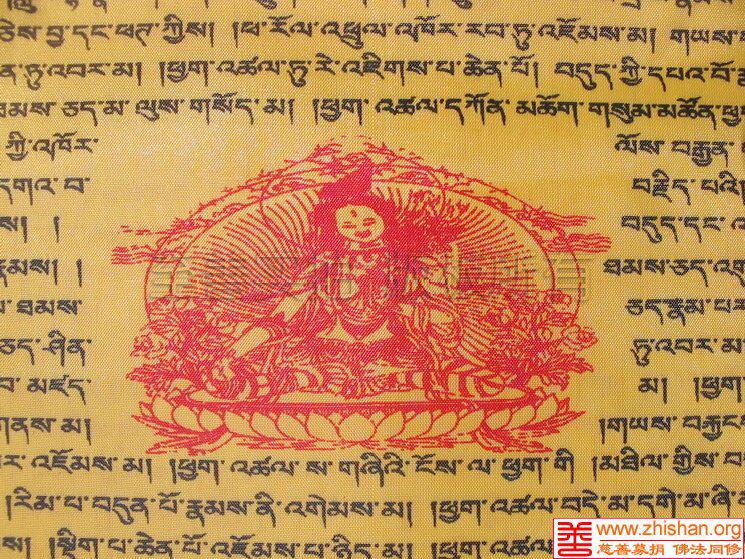 ཅེས་བྱ་དང་ཕཊ་ཀྱིས། །ཕ་རོལ་འཕྲུལ་འཁོར་རབ་ཏུ་འཇོམས་མ། གཡས་
ཏུ་འབར་མ། །ཕྱག་འཚལ་ཏུ་རེ་འཇིགས་པ་ཆེན་པོ། བདུད་ཀྱི་དཔའ་བོ་
ཐམས་ཅད་མ་ལུས་གསོད་མ། །ཕྱག་འཚལ་དཀོན་མཆོག་གསུམ་མཚོན་ཕྱ
ཀྱི་འཁོར་ ལོས་བརྒྱན་
དགའ་བ་ བརྗིད་པའི་
ས། ། བདུད་དང་
རྣམས། ། ཐམས་ཅད་འགུ
ཐམས་ ཅད་རྣམ་པར
ཅད་ཤིན་ ཏུ་འབར་མ
མཛད་ མ། །ཕྱག་
གནས་མ། །གཡས་བརྐྱང་
འཇོམས་མ། །ཕྱག་འཚལ་ས་གཞིའི་ངོས་ལ་ཕྱག་གི །མཐིལ་གྱིས་བ
།རིམ་པ་བདུན་པོ་རྣམས་ནི་འགེམས་མ། །ཕྱག་འཚལ་བདེ་མ་དགེ་མ་ཞི་
ས། །སྡིག་པ་ཆེན་པོ་འཇོམས་པ་ཉིད་མ། །ཕྱག་
www.zhishan.org
慈善募捐 佛法同修